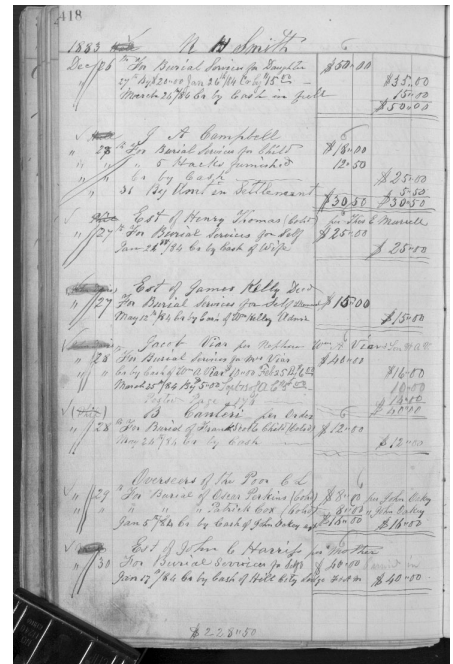 418
1883 N H Smith
Dec 26 For Burial Services for Daughter $50.00
27th By $20.00 Jan 26th/84 Co by $15.00 $35.00
March 26/84 Co by Cash in full 15.00
$50.00
J A Campbell
" 28 For Burial Services for Child $18.00
" " 5 Hacks furnished 12.50
" " Co by Cash $25.00
" " 31 By Amt in Settlement 5.50
$30.50 $30.50
Est of Henry Thomas (Cold) per Thos C Murrell
" 27 For Burial Services for Self $25.00
Jan 24/84 Co by Cash of Wife $25.00
Est of James Kelly Decd
" 27 For Burial Services for Self $15.00
May 12th/84 Co by Cash of Wm Kelley Admr $15.00
Jacob Vias per Nephew Wm A Vias
" 28 For Burial Services for Mrs Vias $40.00
Co by Cash of Wm A Vias 10.00 Feb 25 $16.00
March 25/84 By 5.00 10.00
14.00
$40.00
B. per Order
" 28 For Burial of Child (Cold) $12.00
May 24/84 Co by Cash $12.00
Overseers of the Poor C.L.
" 29 For Burial of Oscar Perkins (Cold) $8.00 per John Oakey
" " " " Patrick Cox (Cold) 8.00 " John Oakey
Jan 5th/84 Co by Cash of John Oakey agt $16.00 $16.00
Est of John C Harriss per Mother
" 30 For Burial Services for Self $40.00
Jan 17th/84 Co by Cash of Hill City Lodge $40.00
$228.50